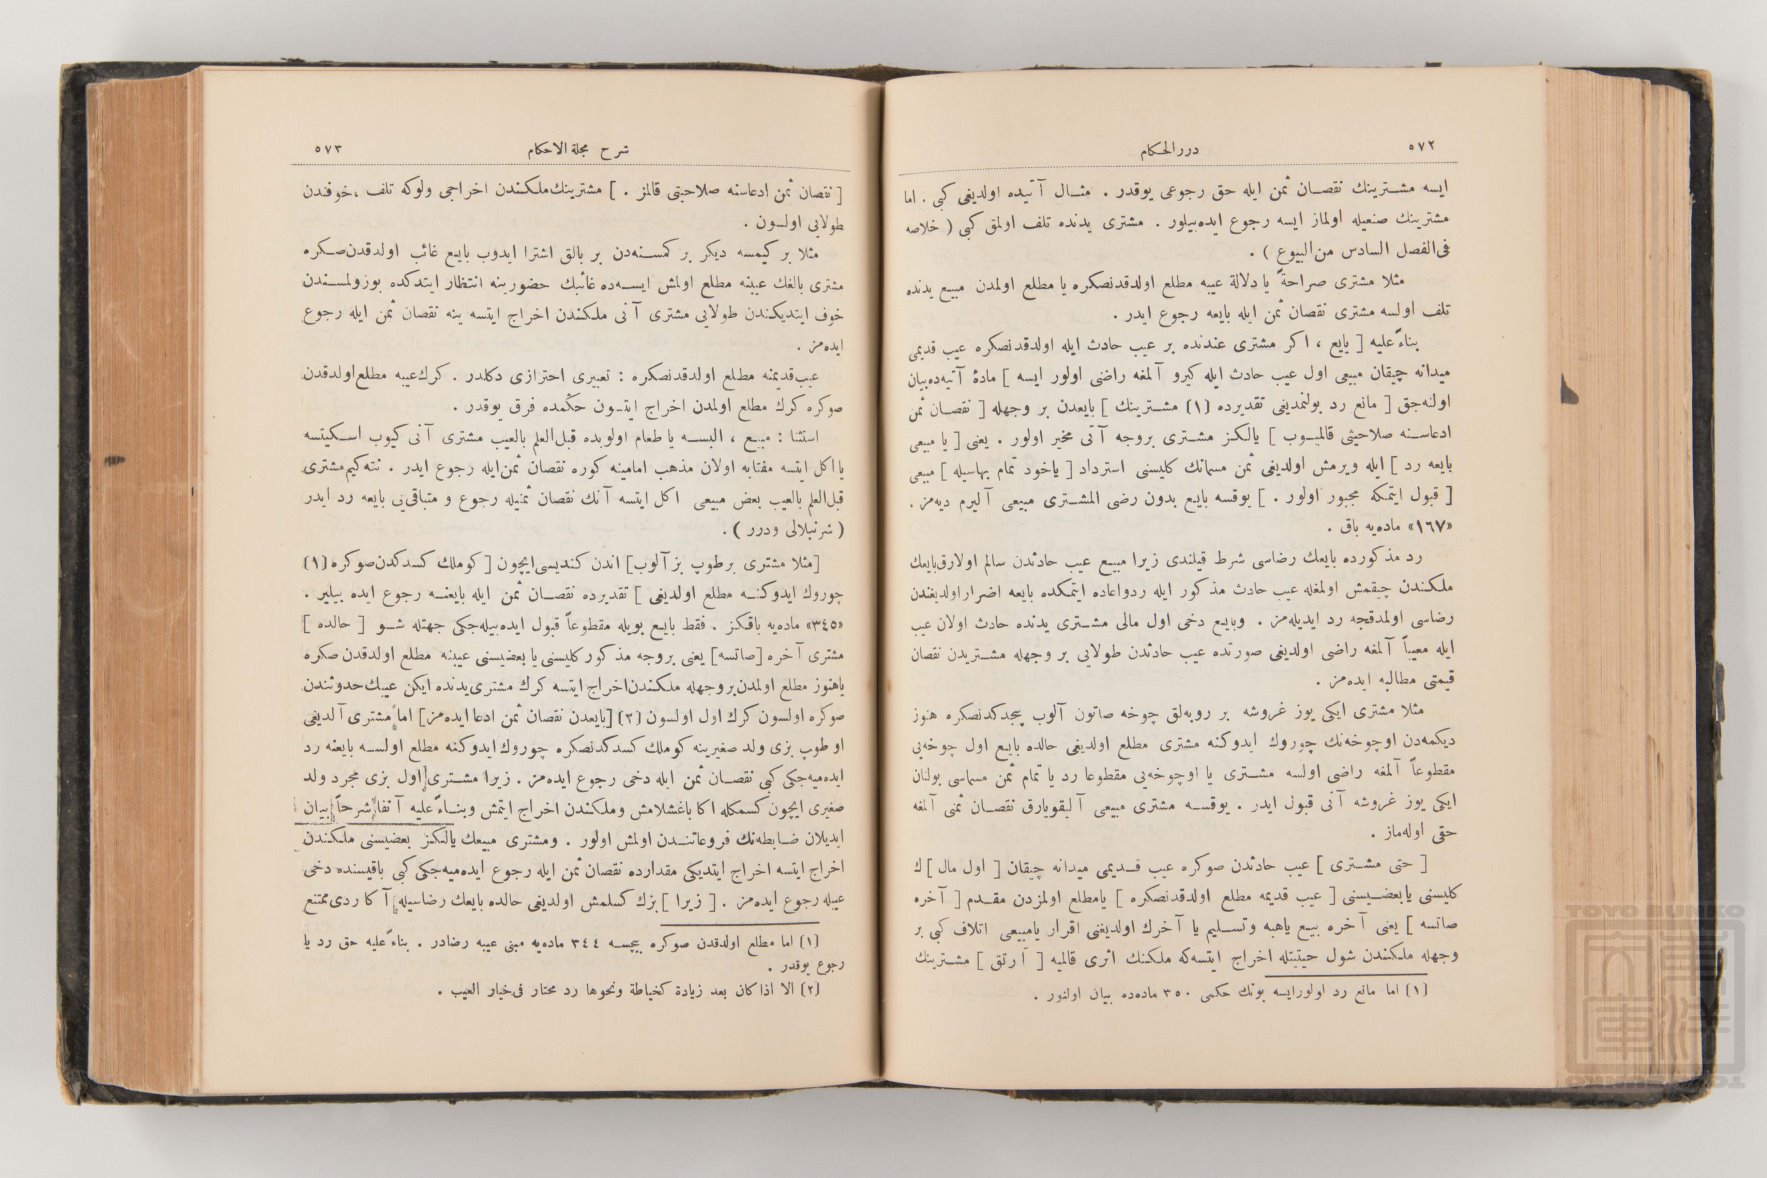 ٥٧٢
دررالحكام
ايسه مشترينك نقصان ثمن ايله حق رجوعى يوقدر . مثال آتيده اولديغى كبى . اما
مشترينك صنعيله اولماز ايسه رجوع ايده‌بيلور . مشترى يدنده تلف اولمق كبى ( خلاصه
فى‌الفصل السادس من‌البيوع ) .
مثلا مشترى صراحةً يا دلالة عيبه مطلع اولدقدنصكره يا مطلع اولمدن مبيع يدنده
تلف اولسه مشترى نقصان ثمن ايله بايعه رجوع ايدر .
بناءً عليه [ بايع ، اكر مشترى عندنده بر عيب حادث ايله اولدقدنصكره عيب قديمى
ميدانه چيقان مبيعى اول عيب حادث ايله كيرو آلمغه راضى اولور ايسه ] مادۀ آتيه‌ده‌بيان
اولنه‌جق [ مانع رد بولنمديغى تقديرده (١) مشترينك ] بايعدن بر وجهله [ نقصان ثمن
ادعاسنه صلاحيتى قالميوب ] يالكز مشترى بروجه آتى مخير اولور . يعنى [ يا مبيعى
بايعه رد ] ايله ويرمش اولديغى ثمن مسمانك كليسنى استرداد [ ياخود تمام بهاسيله ] مبيعى
[ قبول ايتمكه مجبور اولور . ] يوقسه بايع بدون رضى المشترى مبيعى آليرم ديه‌مز .
«١٦٧» ماده‌يه باق .
رد مذكورده بايعك رضاسى شرط قيلندى زيرا مبيع عيب حادثدن سالم اولارق‌بايعك
ملكندن چيقمش اولمغله عيب حادث مذكور ايله ردواعاده ايتمكده بايعه اضراراولديغندن
رضاسى اولمدقجه رد ايديله‌مز . وبايع دخى اول مالى مشترى يدنده حادث اولان عيب
ايله معيباً آلمغه راضى اولديغى صورتده عيب حادثدن طولايى بر وجهله مشتريدن نقصان
قيمتى مطالبه ايده‌مز .
مثلا مشترى ايكى يوز غروشه بر روبه‌لق چوخه صاتون آلوب بيجدكدنصكره هنوز
ديكمه‌دن اوچوخه‌نك چوروك ايدوكنه مشترى مطلع اولديغى حالده بايع اول چوخه‌يى
مقطوعاً آلمغه راضى اولسه مشترى يا اوچوخه‌يى مقطوعا رد يا تمام ثمن مسماسى بولنان
ايكى يوز غروشه آنى قبول ايدر . يوقسه مشترى مبيعى آليقويارق نقصان ثمنى آلمغه
حقى اوله‌ماز .
[ حتى مشترى ] عيب حادثدن صوكره عيب قديمى ميدانه چيقان [ اول مال ] ك
كليسنى يابعضيسنى [ عيب قديمه مطلع اولدقدنصكره ] يامطلع اولمزدن مقدم [ آخره
صاتسه ] يعنى آخره بيع ياهبه وتسليم يا آخرك اولديغنى اقرار يامبيعى اتلاف كبى بر
وجهله ملكندن شول حيثيتله اخراج ايتسه‌كه ملكنك اثرى قالميه [ آرتق ] مشترينك
(١) اما مانع رد اولورايسه بونك حكمى ٣٥٠ ماده‌ده بيان اولنور .
شرح مجلة الاحكام
٥٧٣
[ نقصان ثمن ادعاسنه صلاحيتى قالمز . ] مشترينك‌ملكندن اخراجى ولوكه تلف ، خوفندن
طولايى اولسون .
مثلا بر كيمسه ديكر بر كمسنه‌دن بر بالق اشترا ايدوب بايع غائب اولدقدن‌صكره
مشترى بالغك عيبنه مطلع اولمش ايسه‌ده غائبك حضورينه انتظار ايتدكده بوزولمسندن
خوف ايتديكندن طولايى مشترى آنى ملكندن اخراج ايتسه ينه نقصان ثمن ايله رجوع
ايده‌مز .
عيب‌قديمنه مطلع اولدقدنصكره : تعبيرى احترازى دكلدر . كرك‌عيبه مطلع‌اولدقدن
صوكره كرك مطلع اولمدن اخراج ايتسون حكمده فرق يوقدر .
استثنا : مبيع ، البسه يا طعام اولوبده قبل‌العلم بالعيب مشترى آنى كيوب اسكيتسه
يااكل ايتسه مفتابه اولان مذهب امامينه كوره نقصان ثمن‌ايله رجوع ايدر . نته‌كيم‌مشترى
قبل‌العلم بالعيب بعض مبيعى اكل ايتسه آنك نقصان ثمنيله رجوع و متباقى‌يى بايعه رد ايدر
( شرنبلالى ودرر ) .
[مثلا مشترى برطوپ بز آلوب] اندن كنديسى‌ايچون [ كوملك كسدكدن‌صوكره (١)
چوروك ايدوكنه مطلع اولديغى ] تقديرده نقصان ثمن ايله بايعنه رجوع ايده بيلير .
«٣٤٥» ماده‌يه باقكز . فقط بايع بويله مقطوعاً قبول ايده‌بيله‌جكى جهتله شو [ حالده ]
مشترى آخره [صاتسه] يعنى بروجه مذكوركليسنى يا بعضيسنى عيبنه مطلع اولدقدن صكره
ياهنوز مطلع اولمدن‌بروجهله ملكندن‌اخراج ايتسه كرك مشترى‌يدنده ايكن عيبك‌حدوثندن
صوكره اولسون كرك اول اولسون (٢) [بايعدن نقصان ثمن ادعا ايده‌مز] اما مشترى آلديغى
او طوپ بزى ولد صغيرينه كوملك كسدكدنصكره چوروك‌ايدوكنه مطلع اولسه بايعنه رد
ايده‌ميه‌جكى كبى نقصان ثمن ايله دخى رجوع ايده‌مز . زيرا مشترى اول بزى مجرد ولد
صغيرى ايچون كسمكله اكا باغشلامش وملكندن اخراج ايتمش وبناءً عليه آنفا شرحاً بيان
ايديلان ضابطه‌نك فروعاتندن اولمش اولور . ومشترى مبيعك يالكز بعضيسنى ملكندن
اخراج ايتسه اخراج ايتديكى مقدارده نقصان ثمن ايله رجوع ايده‌ميه‌جكى كبى باقيسنده دخى
عيبله رجوع ايده‌مز . [ زيرا ] بزك كسلمش اولديغى حالده بايعك رضاسيله آكا ردى ممتنع
(١) اما مطلع اولدقدن صوكره بيچسه ٣٤٤ ماده‌يه مبنى عيبه رضادر . بناءً عليه حق رد يا
رجوع يوقدر .
(٢) الا اذا كان بعد زيادة كخياطة ونحوها رد محتار فى‌خيار العيب .
TOYO BUNKO